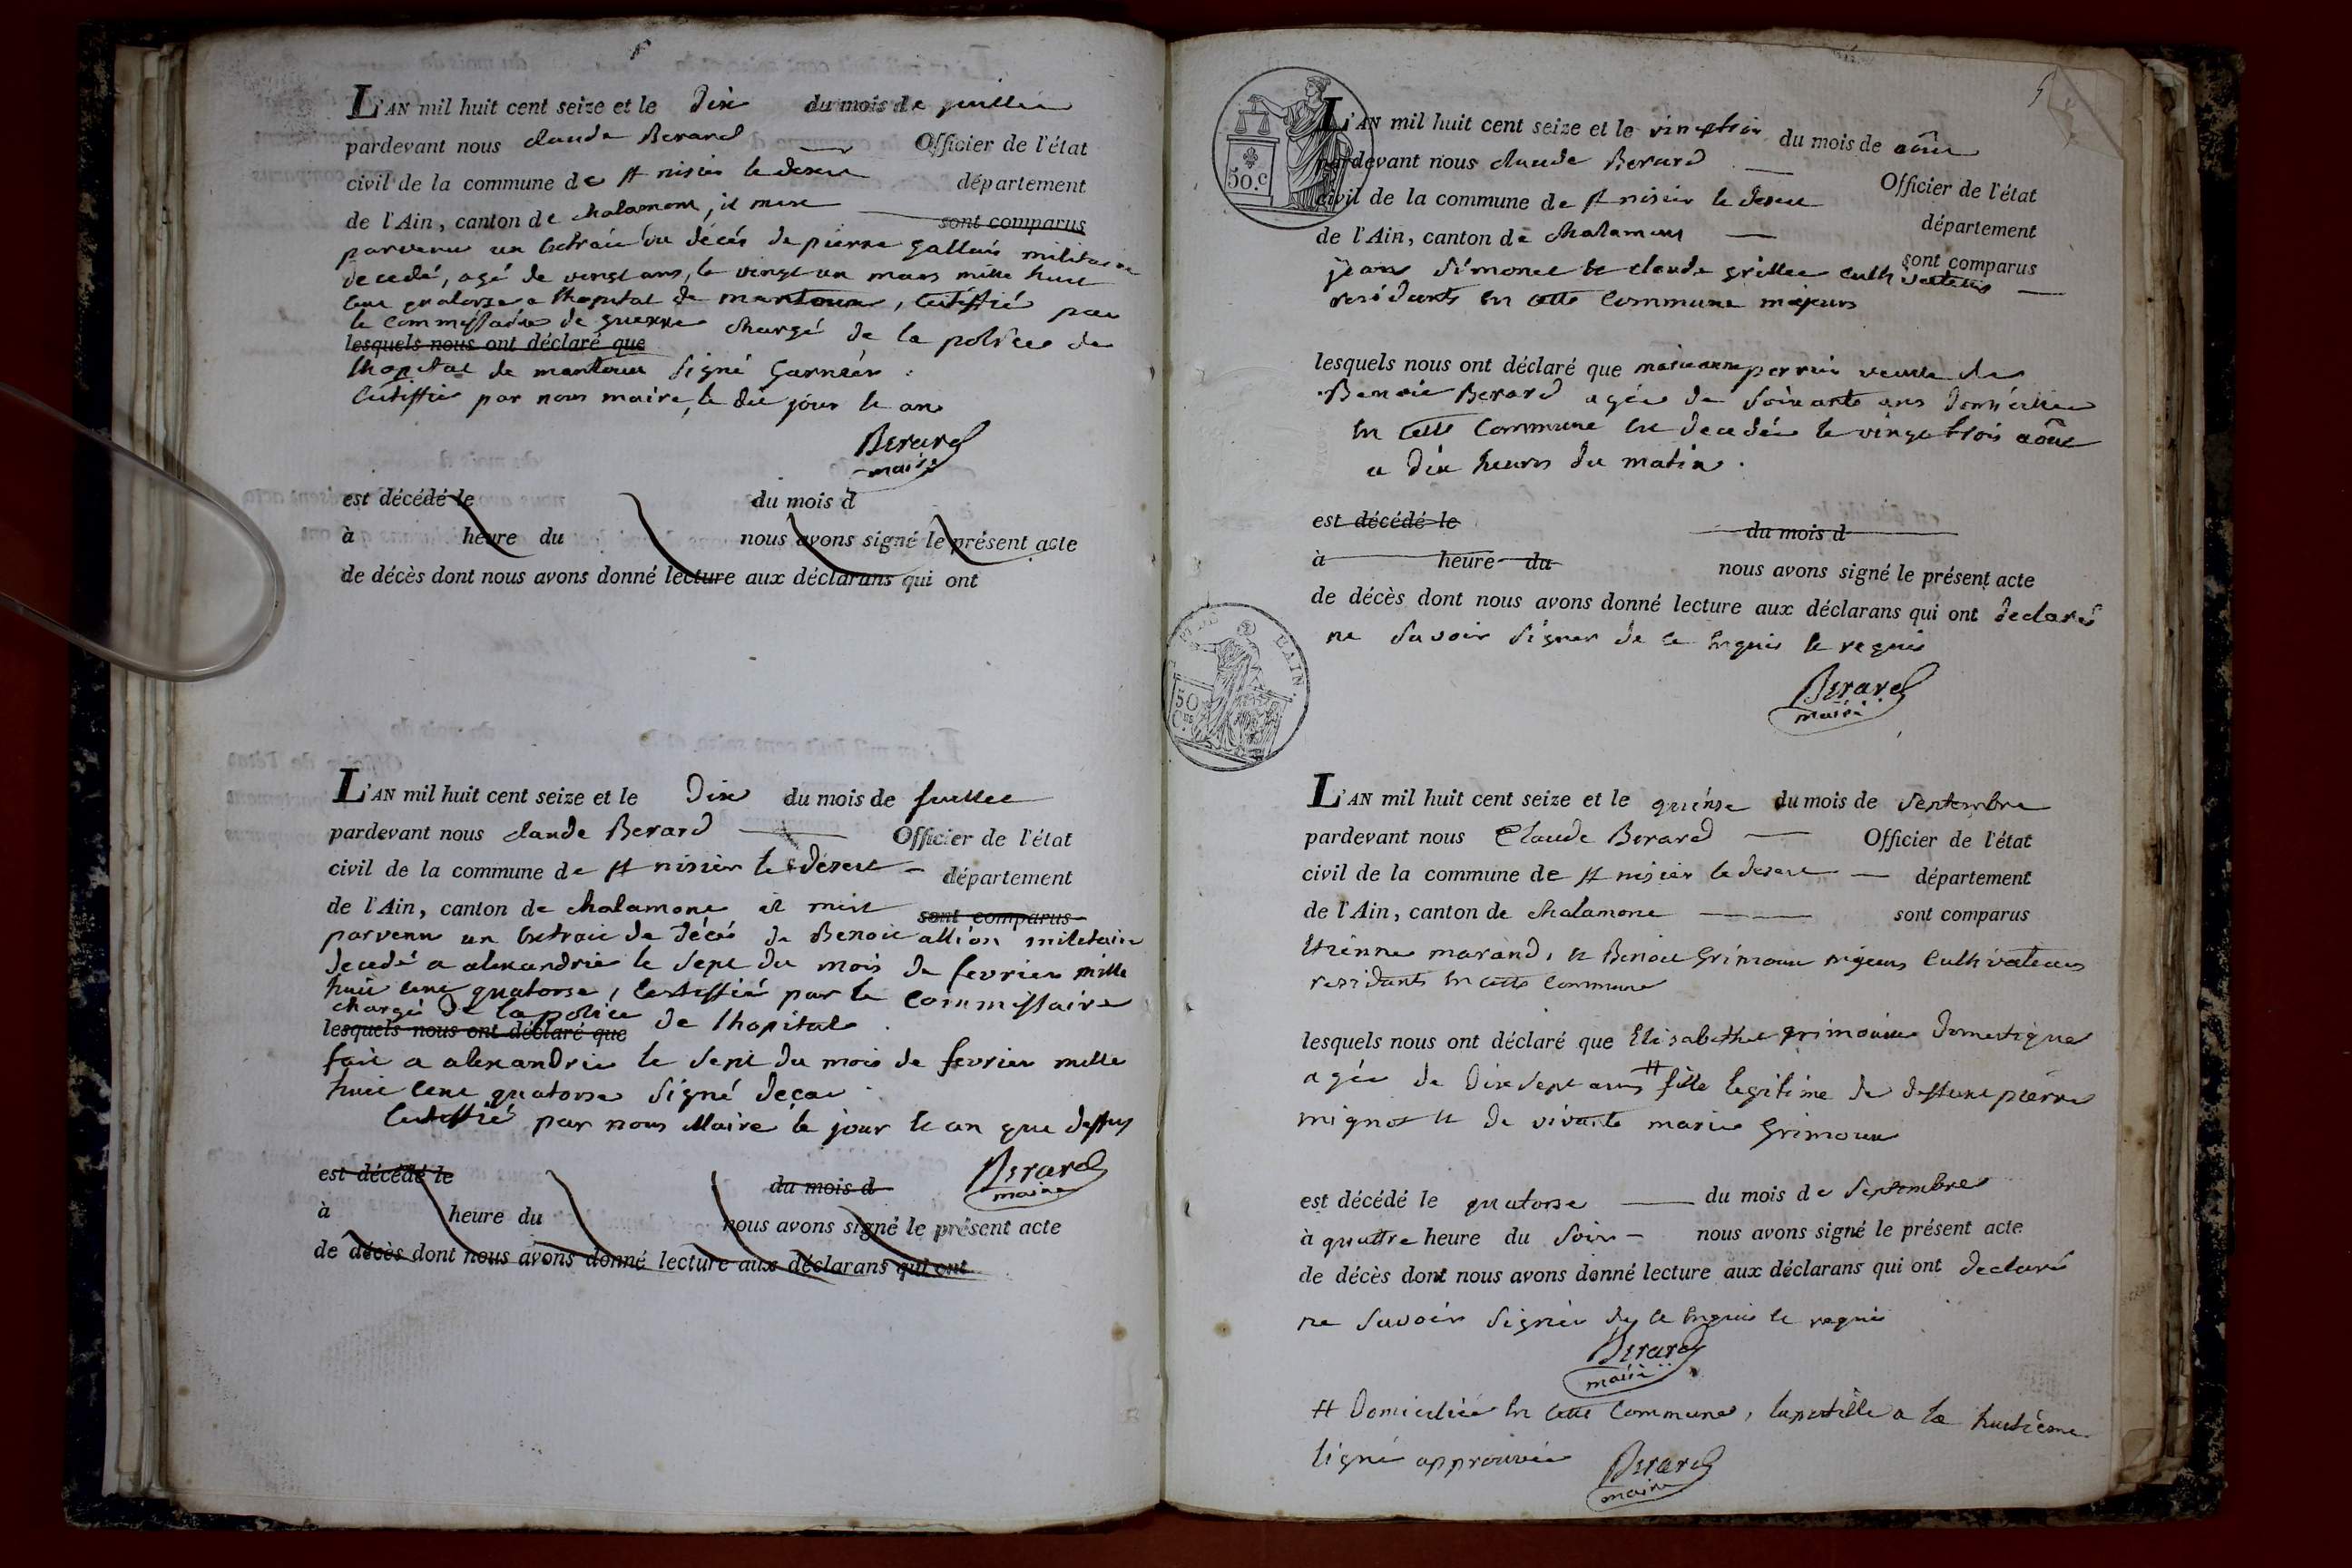 L'AN mil huit cent seize et le Dix du mois de juillet
pardevant nous claude Berard Officier de l'état
civil de la commune de st nisier le desert département
de l'Ain, canton de chalamont, il mest sont comparus
parvenu un extrait du décés de pierre gallais militaire
decedé, agé de vingt ans, le vingt un mars mille huit
cent quatorze a lhopital de mantoue, certiffié par
le commissaire de guerre chargé de la police de
lesquels nous ont déclaré que
lhopital de mantoue signé garnier.
Certiffié par nous maire, le dit jour et an
Berard
maire
est décédé le du mois d
à heure du nous avons signé le présent acte
de décès dont nous avons donné lecture aux déclarans qui ont
L'AN mil huit cent seize et le Dix du mois de juillet
pardevant nous claude Berard Officier de l'état
civil de la commune de st nisier le désert département
de l'Ain, canton de chalamont il mest sont comparus
parvenu un extrait de décés de Benoit allion militaire
decedé a alexandrie le sept du mois de fevrier mille
huit cent quatorse, certiffié par le commissaire
chargé de la police de lhopital.
lesquels nous ont déclaré que
fait a alexandrie le sept du mois de fevrier mille
huit cent quatorse signé
Certiffié par nous Maire le jour et an que dessus
Berard
maire
est décédé le du mois d
à heure du nous avons signé le présent acte
de décès dont nous avons donné lecture aux déclarans qui ont
5
50.c
L'AN mil huit cent seize et le vingttrois du mois de aôut
pardevant nous claude Berard Officier de l'état
civil de la commune de st nisier le desert département
de l'Ain, canton de chalamont sont comparus
jean simonet et claude grillet cultivateurs
residants en cette commune majeurs
lesquels nous ont déclaré que marianne perrin veuve de
Benoit Berard agée de soixante ans domiciliée
en cette commune est decedée le vingt trois aôut
a dix heures du matin.
est décédé le du mois d
à heure du nous avons signé le présent acte
de décès dont nous avons donné lecture aux déclarans qui ont declaré
ne savoir signer de ce enquis et requis
Berard
maire
L'AIN.
50
Ces
L'AN mil huit cent seize et le quinse du mois de septembre
pardevant nous Claude Berard Officier de l'état
civil de la commune de st nisier le desert département
de l'Ain, canton de chalamont sont comparus
Etienne marand, et Benoit Grimoux majeurs cultivateurs
residants en cette commune
lesquels nous ont déclaré que Elisabethe grimouux domestique
agée de dix sept ans # fille legitime de deffunt pierre
mignot et de vivante marie Grimoux
est décédé le quatorse du mois de septembre
à quattre heure du soir nous avons signé le présent acte
de décès dont nous avons donné lecture aux déclarans qui ont declaré
ne savoir signer de ce enquis et requis
Berard
maire
# Domiciliée en cette commune, lapostille a la huitième
ligne approuvée Berard
maire